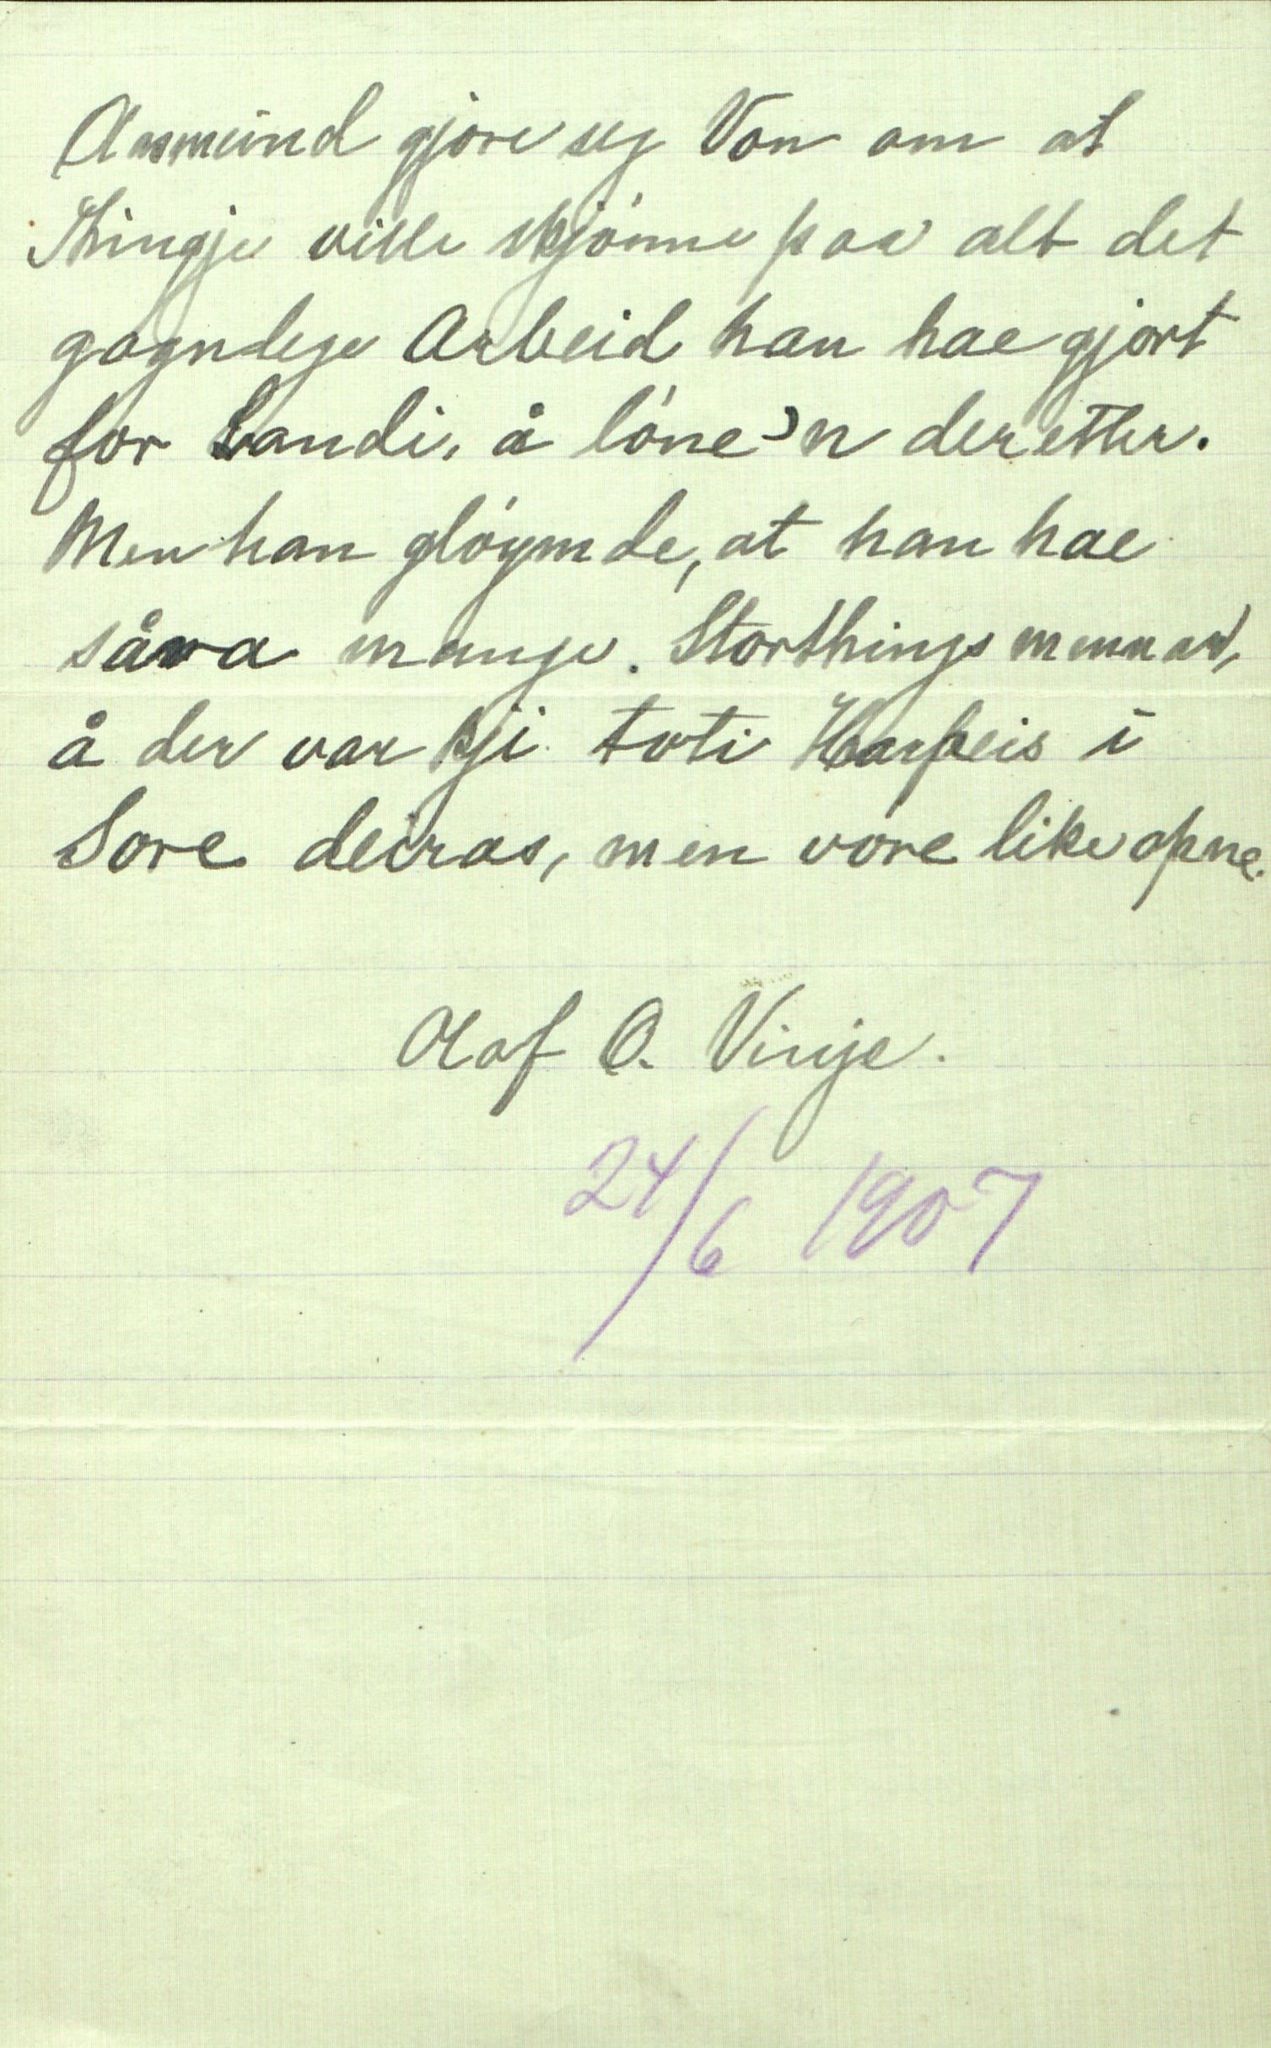 Aasmund gjore seg Von om at
Thingje ville skjónne paa alt det
gagnlege Arbeid han hae gjort
for Landi, å lóne'n deretter.
Men han glóymde, at han hae
såra mange Storthingsmennar,
å der var kji toti Harpeis i
Sore deiras, men vore like opne.
Olaf O. Vinje.
24/6 1907